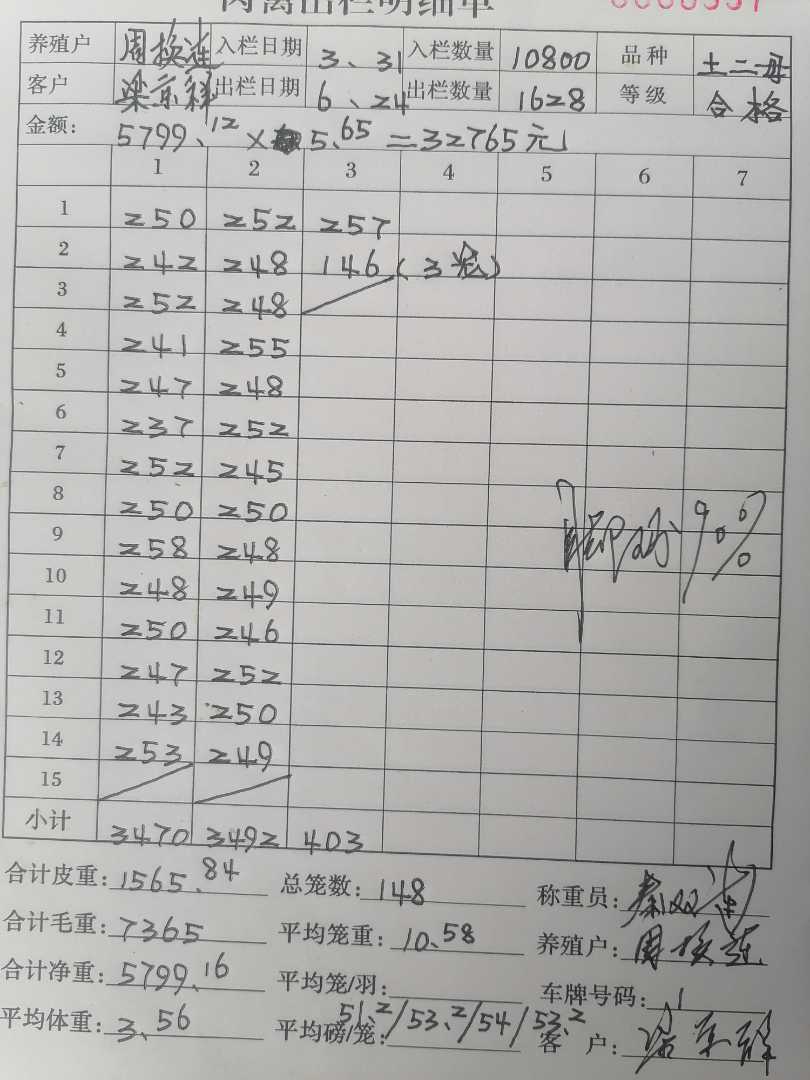 肉禽出栏明细单
养殖户 周换连 入栏日期 3、31 入栏数量 10800 品种 土二母
客户 梁京释 出栏日期 6、24 出栏数量 1628 等级 合格
金额: 5799、12 × 5、65 = 32765元
1 2 3 4 5 6 7
1 250 252 257
2 242 248 146(3笼)
3 252 248
4 241 255
5 247 248
6 237 252
7 252 245
8 250 250
9 258 248
10 248 249
11 250 246
12 247 252
13 243 250
14 253 249
15
小计 3470 3492 403
合计皮重: 1565、84 总笼数: 148 称重员:
合计毛重: 7365 平均笼重: 10、58 养殖户: 周换连
合计净重: 5799、16 平均笼/羽: 车牌号码: 1
平均体重: 3、56 平均磅/笼: 51、2/53、2/54/53、2 客 户: